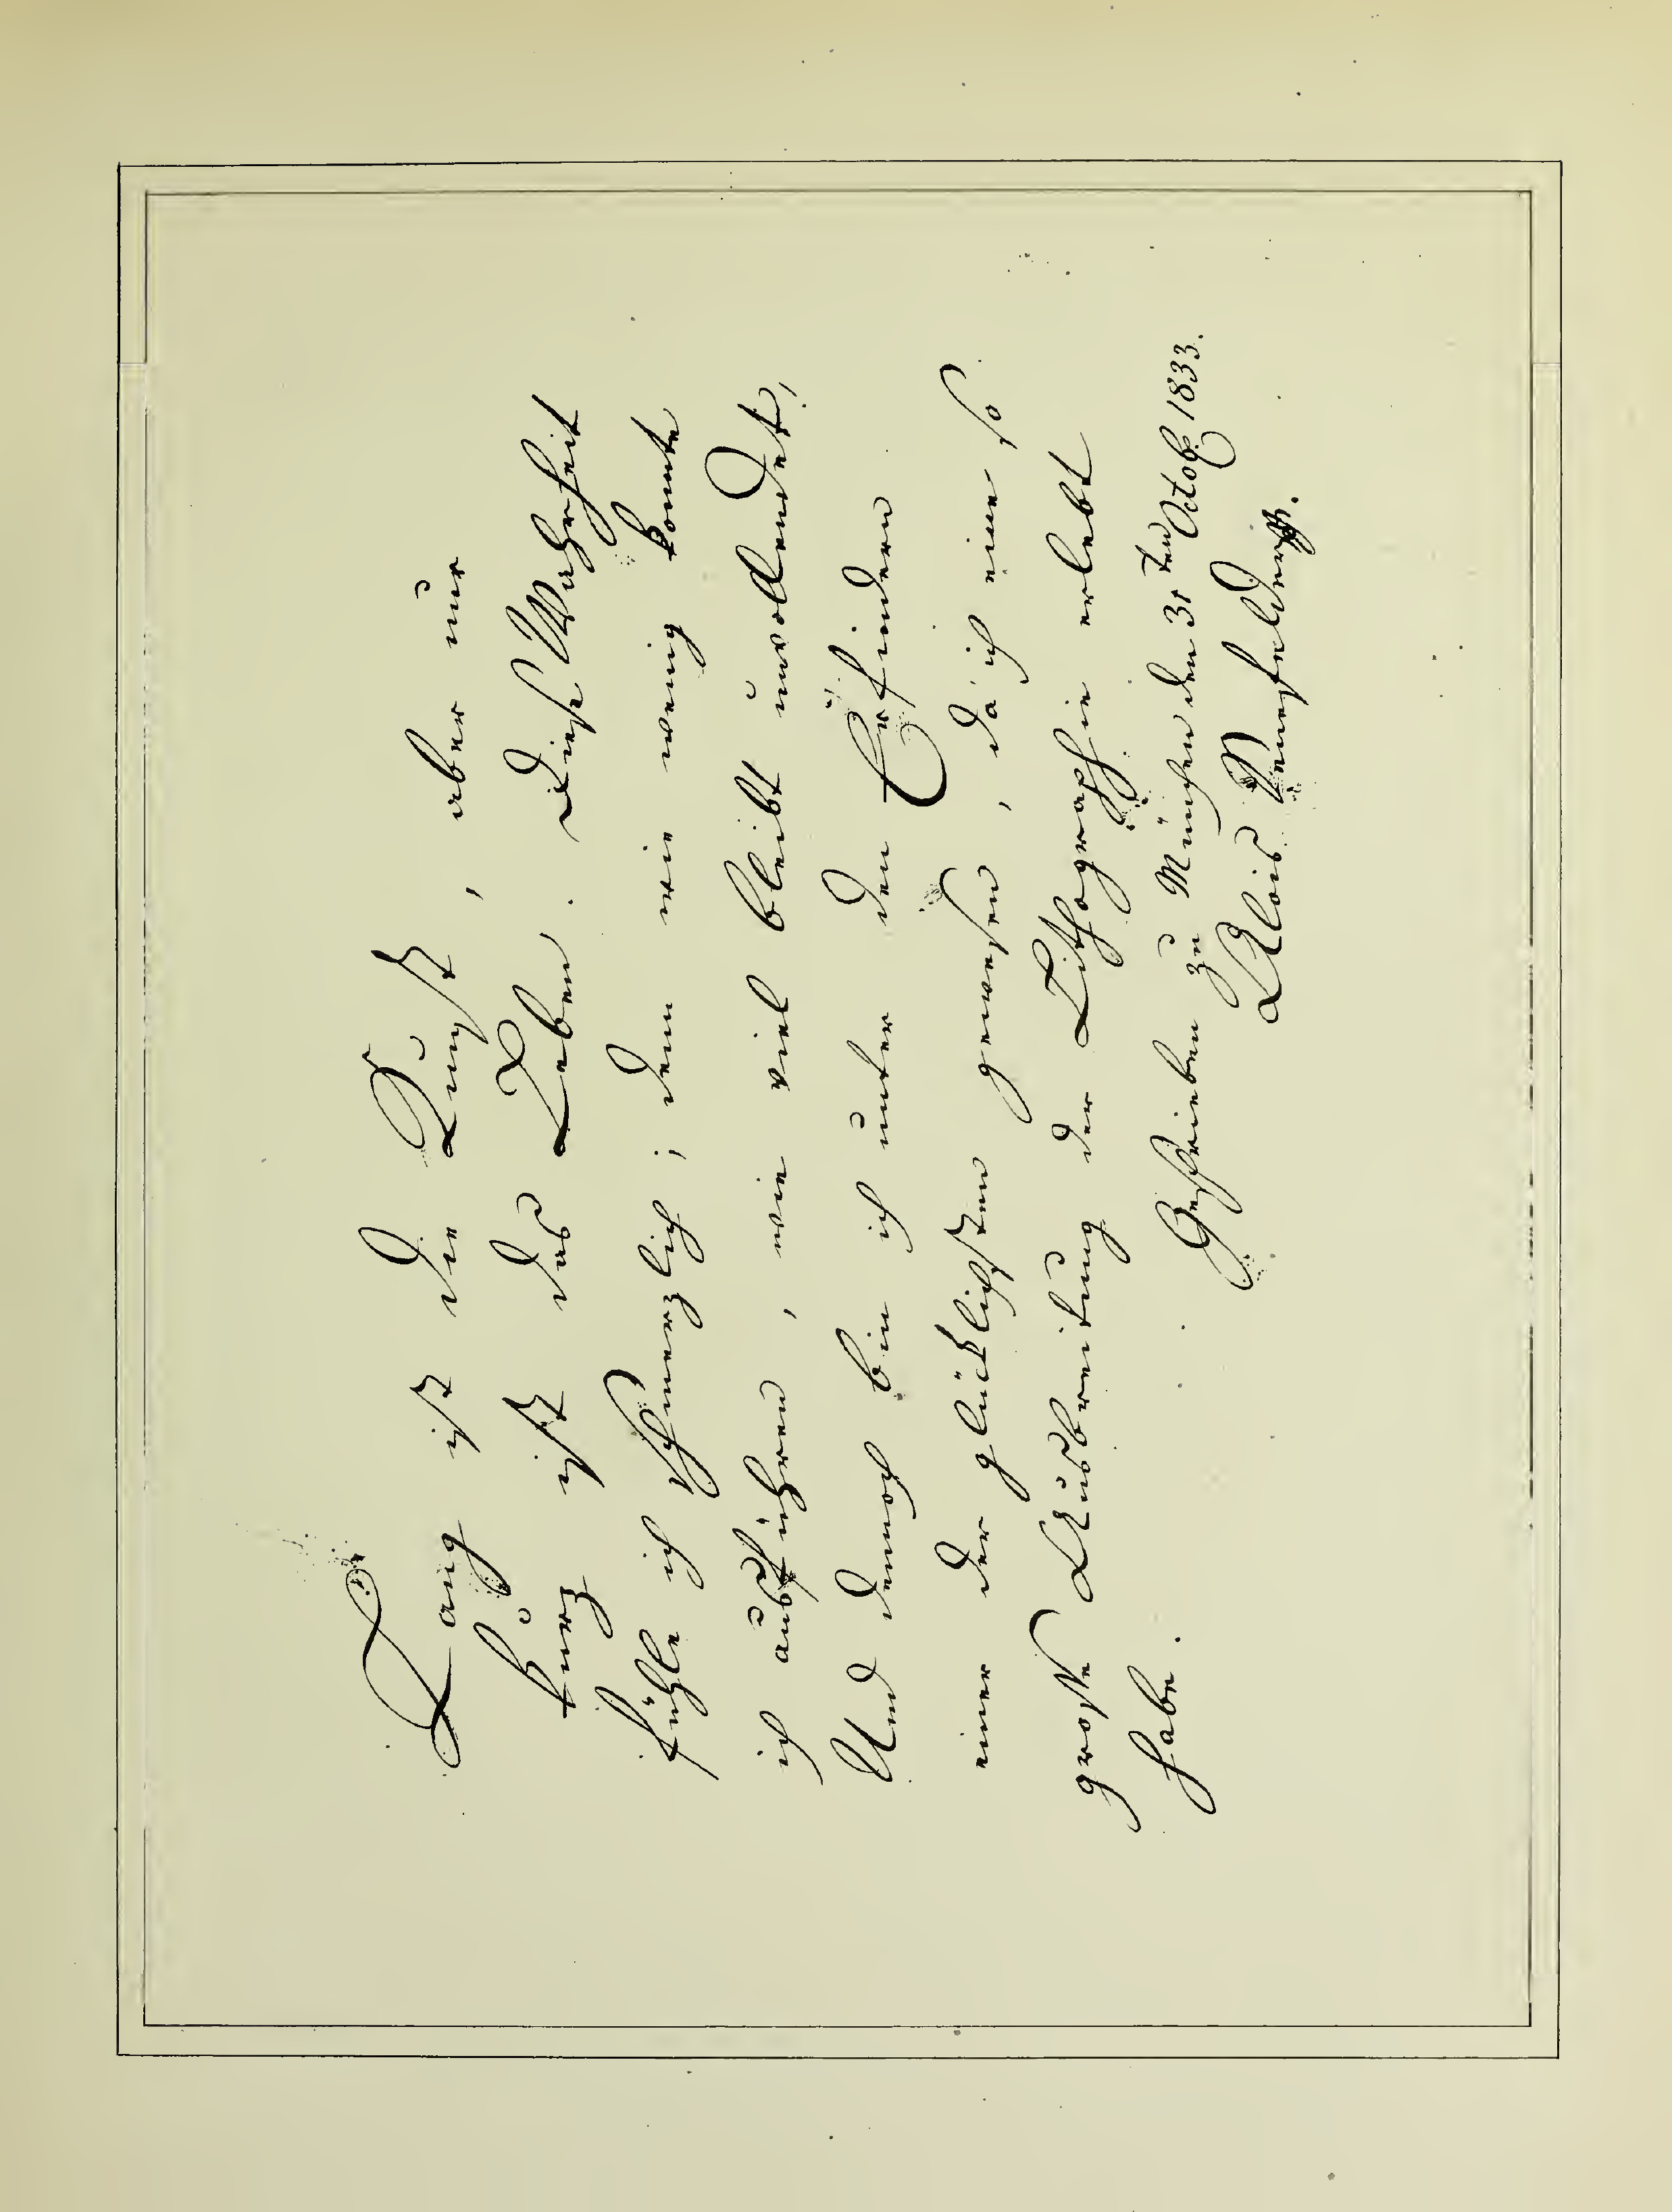 Lang ist die Kunst, aber nur
kurz ist das Leben. Diese Wahrheit
fühle ich schmerzlich; denn wie wenig konnte
ich ausführen, wie viel bleibt unvollendet,
Und dennoch bin ich unter den Erfindern
einer der glücklichsten gewesen, da ich eine so
große Ausbreitung der Lithographie erlebt
habe.
Geschrieben zu München den 31ten Octob. 1833.
Alois Senefelder.